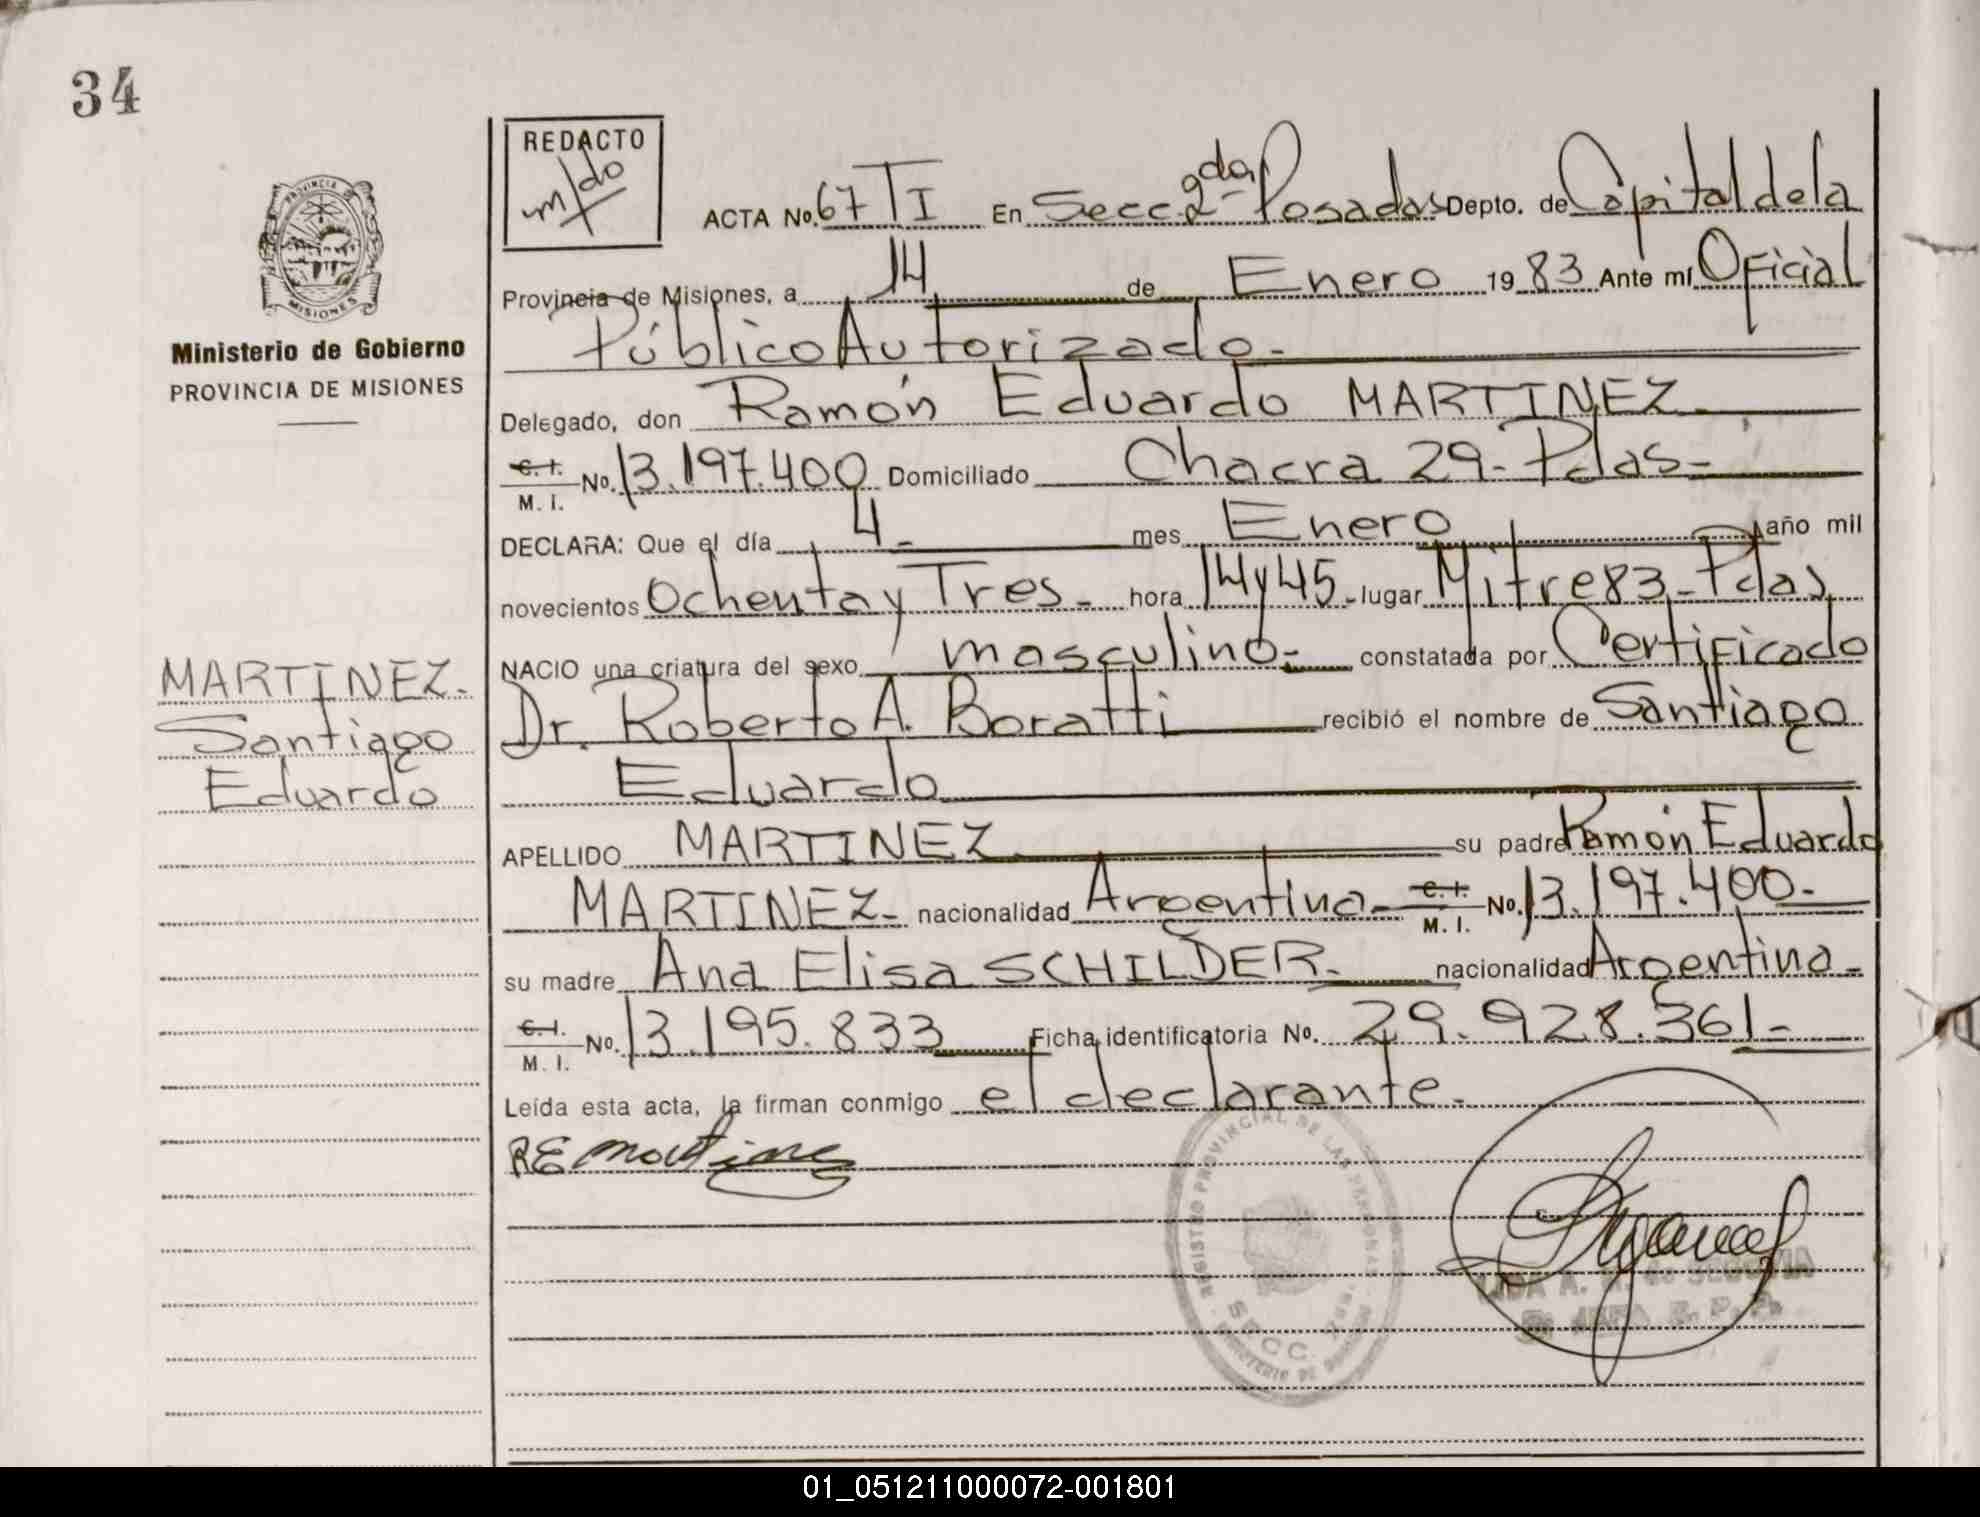 34
REDACTO
m/do
PROVINCIA
MISIONES
Ministerio de Gobierno
PROVINCIA DE MISIONES
MARTINEZ.
Santiago
Eduardo
ACTA No. 67 TI En Secc. 2da Posadas Depto. de Capital de la
Provincia de Misiones, a 14 de Enero 1983 Ante mí Oficial
Público Autorizado.
Delegado, don Ramón Eduardo MARTINEZ
C. I.
M. I. No. 13.197.400 Domiciliado Chacra 29- Pdas-
DECLARA: Que el día 4- mes Enero año mil
novecientos Ochenta y Tres- hora 14 y 45- lugar Mitre 83- Pdas
NACIO una criatura del sexo masculino- constatada por Certificado
Dr. Roberto A. Boratti recibió el nombre de Santiago
Eduardo
APELLIDO MARTINEZ su padre Ramón Eduardo
MARTINEZ- nacionalidad Argentina- C. I.
M. I. No. 13.197.400-
su madre Ana Elisa SCHILDER- nacionalidad Argentina-
C. I.
M. I. No. 13.195.833 Ficha identificatoria No. 29.928.361-
Leída esta acta, la firman conmigo el declarante.
RE Martinez
REGISTRO PROVINCIAL DE LAS PERSONAS
SECC.
A. de SEGOVIA
JEFA R. P. P.
01_051211000072-001801